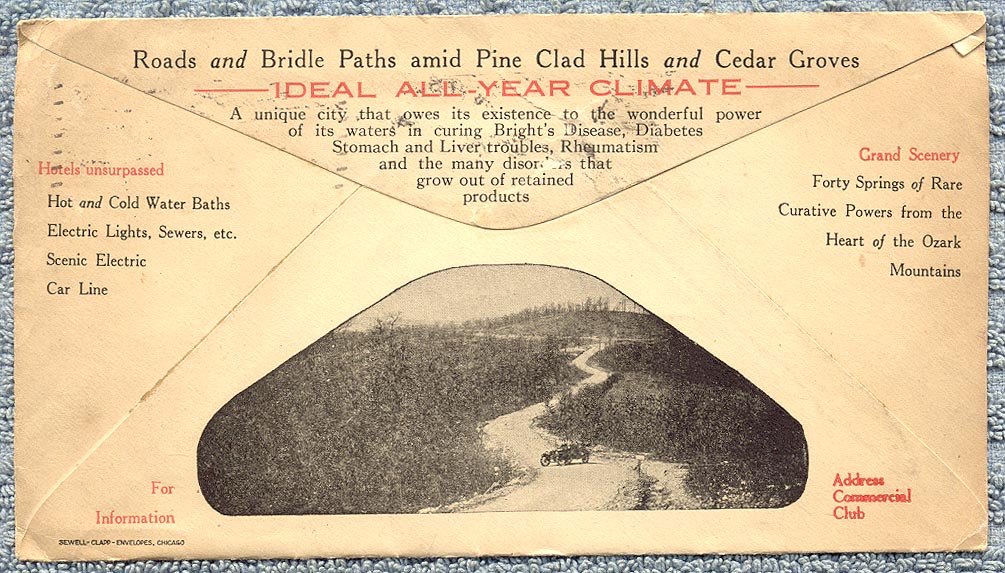 Roads and Bridle Paths amid Pine Clad Hills and Cedar Groves
IDEAL ALL-YEAR CLIMATE
A unique city that owes its existence to the wonderful power
of its waters in curing Bright's Disease, Diabetes
Stomach and Liver troubles, Rheumatism
and the many disorders that
grow out of retained
products
Hotels unsurpassed
Hot and Cold Water Baths
Electric Lights, Sewers, etc.
Scenic Electric
Car Line
Grand Scenery
Forty Springs of Rare
Curative Powers from the
Heart of the Ozark
Mountains
For
Information
Address
Commercial
Club
SEWELL-CLAPP-ENVELOPES, CHICAGO